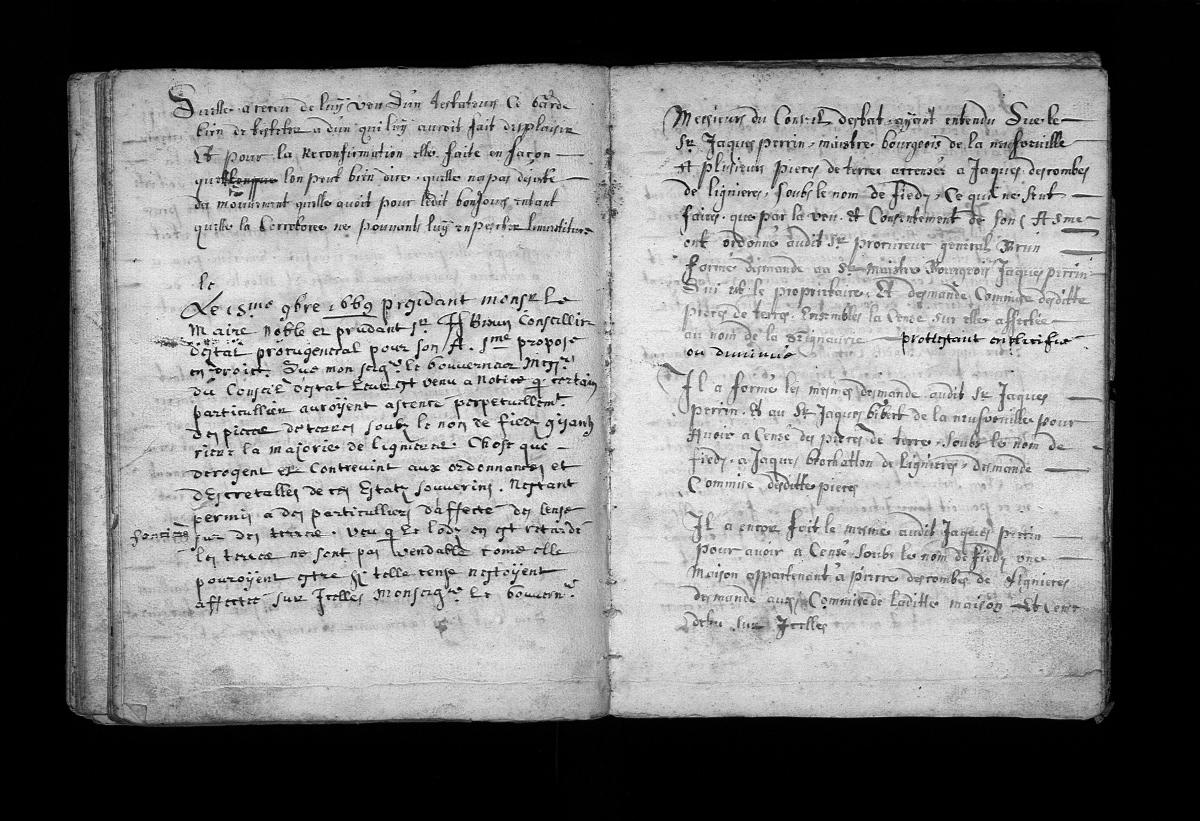 quelle a receu de luy veu qun testateur se garde
bien de tester a dun qui luy auroit fait desplaisir
Et pour la Reconfirmation elle faite en facon
que lon peut bien dire quelle na pas desisté
du mouvement quelle avoit pour ledit bonjour
quelle la ne pouvants luy enpescher linvestiture
le
Le 18me 9bre 1669 presidant monsr le
Maire Noble et prudant sr. Brun Conseillier
destat procugeneral pour son A. sme propose
en droict. Que mon seigr. le Gouverneur Messrs
du Conseil destat leur est venu a Notice q certain
particullier auroyent acencé perpetuellemt.
des pieces de terres soubs le nom de fiedz gisants
riere la majorie de lignieres. Chose qui
derogent et Contrevint aux ordonnances et
descretalles de ces Estats souverins. Nestant
permis a des particulliers daffecté des cense
sur des terres. veu q le lodz en est retardé
les terres ne sont pas vendable come elle
pouroyent estre sy telle cense nestoyent
affectée sur Icelles Monseigr. le Gouvern.r
Messieurs du Conseil destat ayant entendu Que le
Sr Jaques perrin maistre bourgeois de la neufveville
A plusieurs pieces de terres accensés a Jaques descombes
de lignieres, soubs le nom de fiedz, Ce qui ne sent
faires que par la veu et Consentement de son A Sme
ont ordonné audit Sr procureur general Brun
formé demande au Sr Maistre Bourgeois Jaques perrin
Qui est le proprietaire, Et demandé Commise desditte
pieces de terres, Ensembles la Cense sur elles affectée
au nom de la Seigneurie protestant enplifié
ou diminué
Il a formé les mesmes demande audit Sr Jaques
perrin, et au Sr Jaques bibert de la neufveville pour
Avoir a Censé des pieces de terre, soubs le nom de
fiedz, a Jaques de Lignieres, demande
Commise desditte pieces
Il a encor fait le mesme audit Jaques perrin
pour avoir a Censé soubs le nom de fiedz une
Maison appartenant a pierre descombes de Lignieres
demande aussy Commise de laditte maison Et Cense
debu sur Icelles